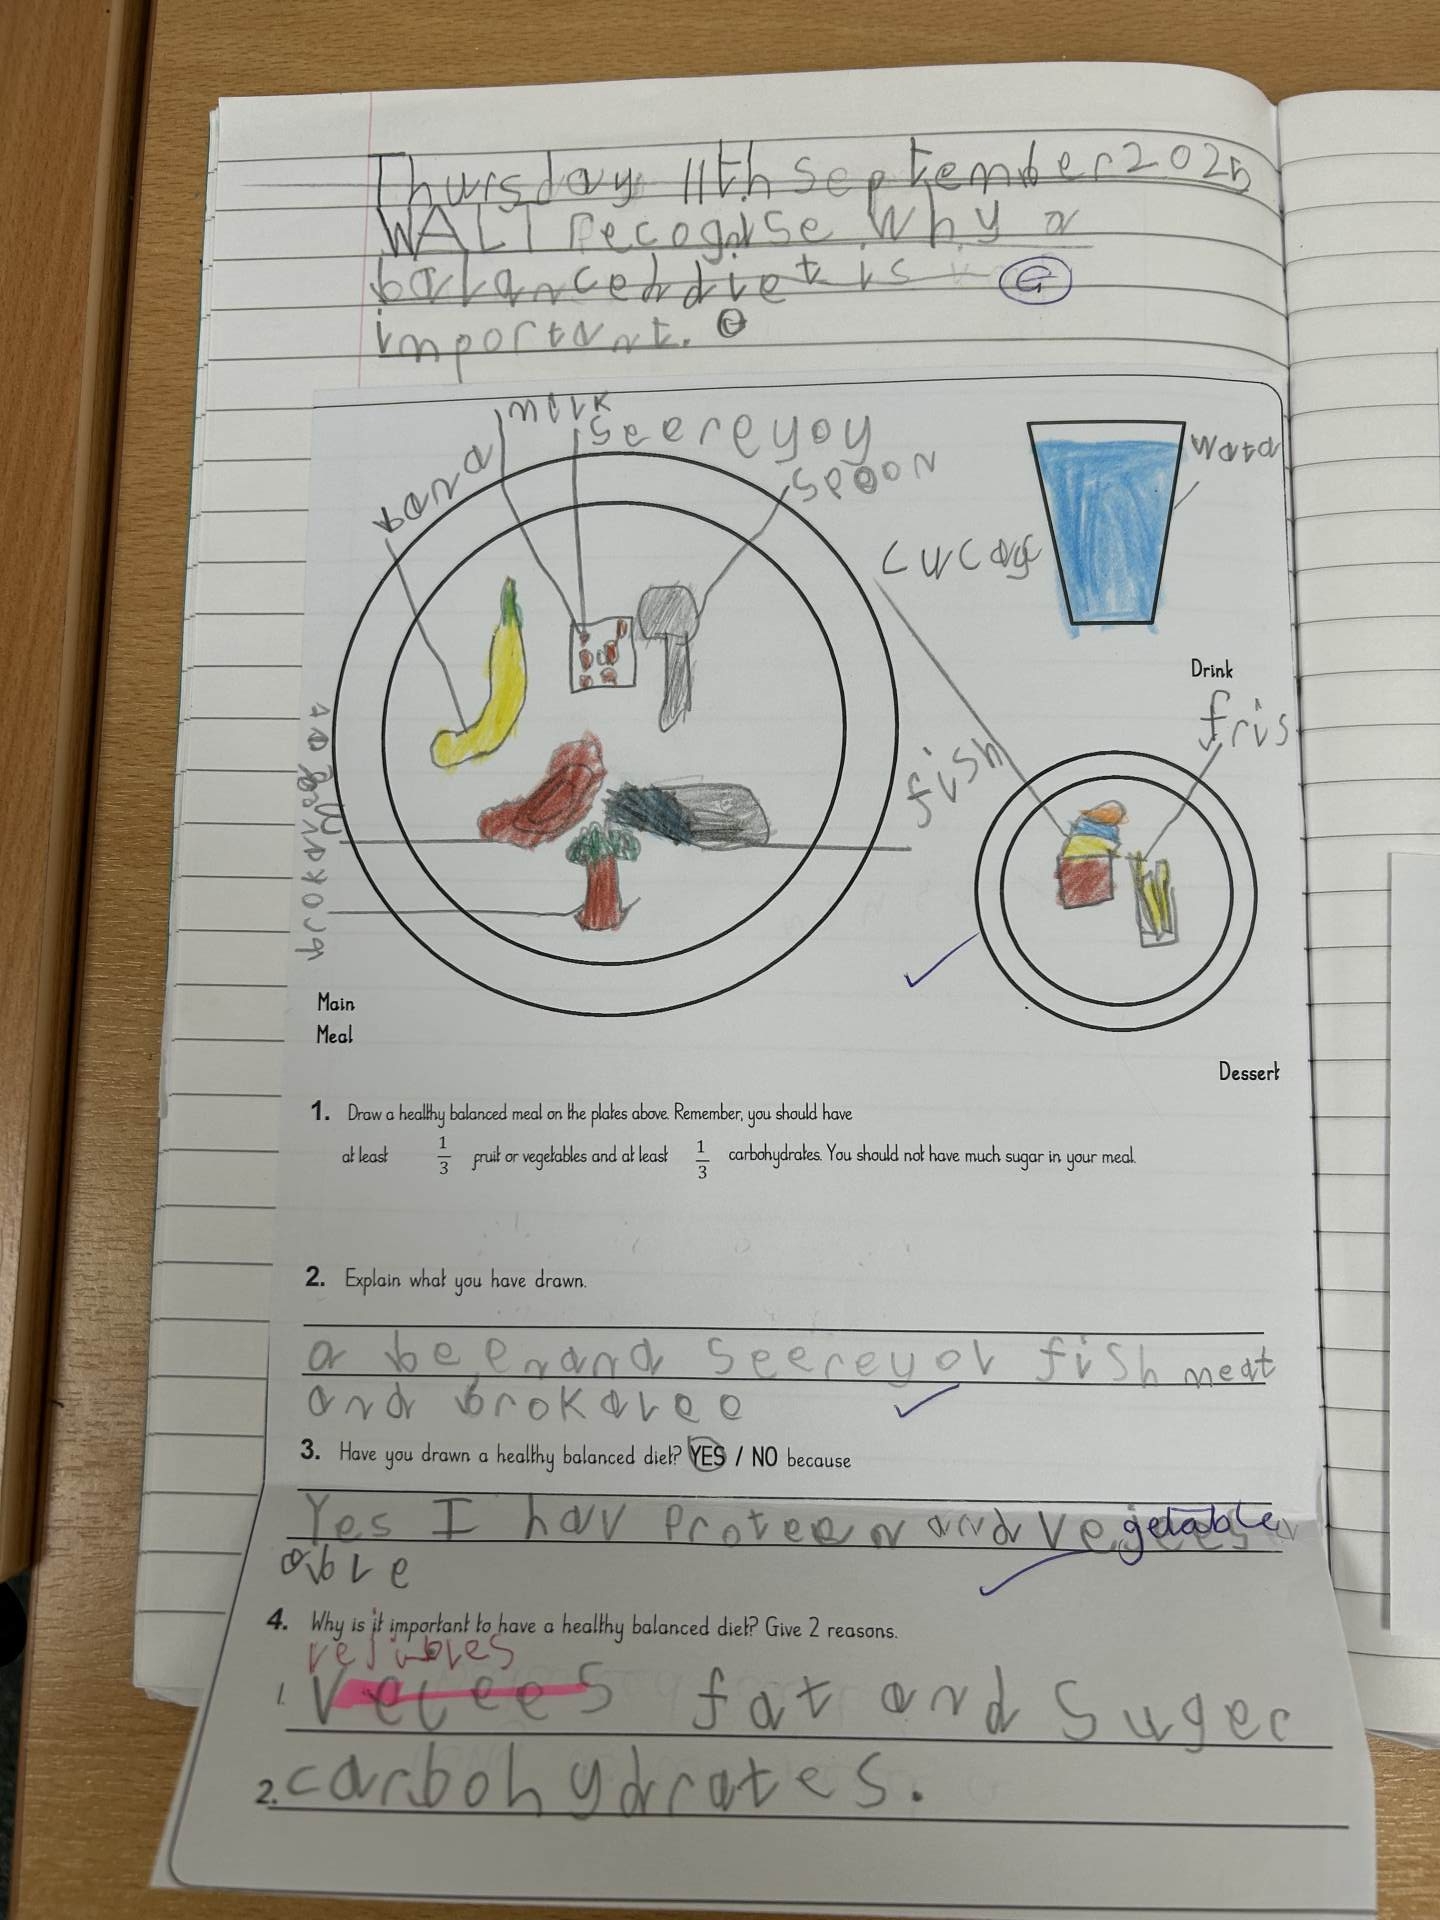 Thursday 11th September 2025
WALT recognise why a
balanced diet is G
important.
milk
seereyoy
bana
spoon
wata
cucage
Drink
fris
fish
Main
Meal
Dessert
1. Draw a healthy balanced meal on the plates above. Remember, you should have
at least 1/3 fruit or vegetables and at least 1/3 carbohydrates. You should not have much sugar in your meal.
2. Explain what you have drawn.
a beenana seereyol fish meat
and brokalee
3. Have you drawn a healthy balanced diet? YES / NO because
Yes I hav proteen and vegetable
able
4. Why is it important to have a healthy balanced diet? Give 2 reasons.
1. fat and suger
2. carbohydrates.